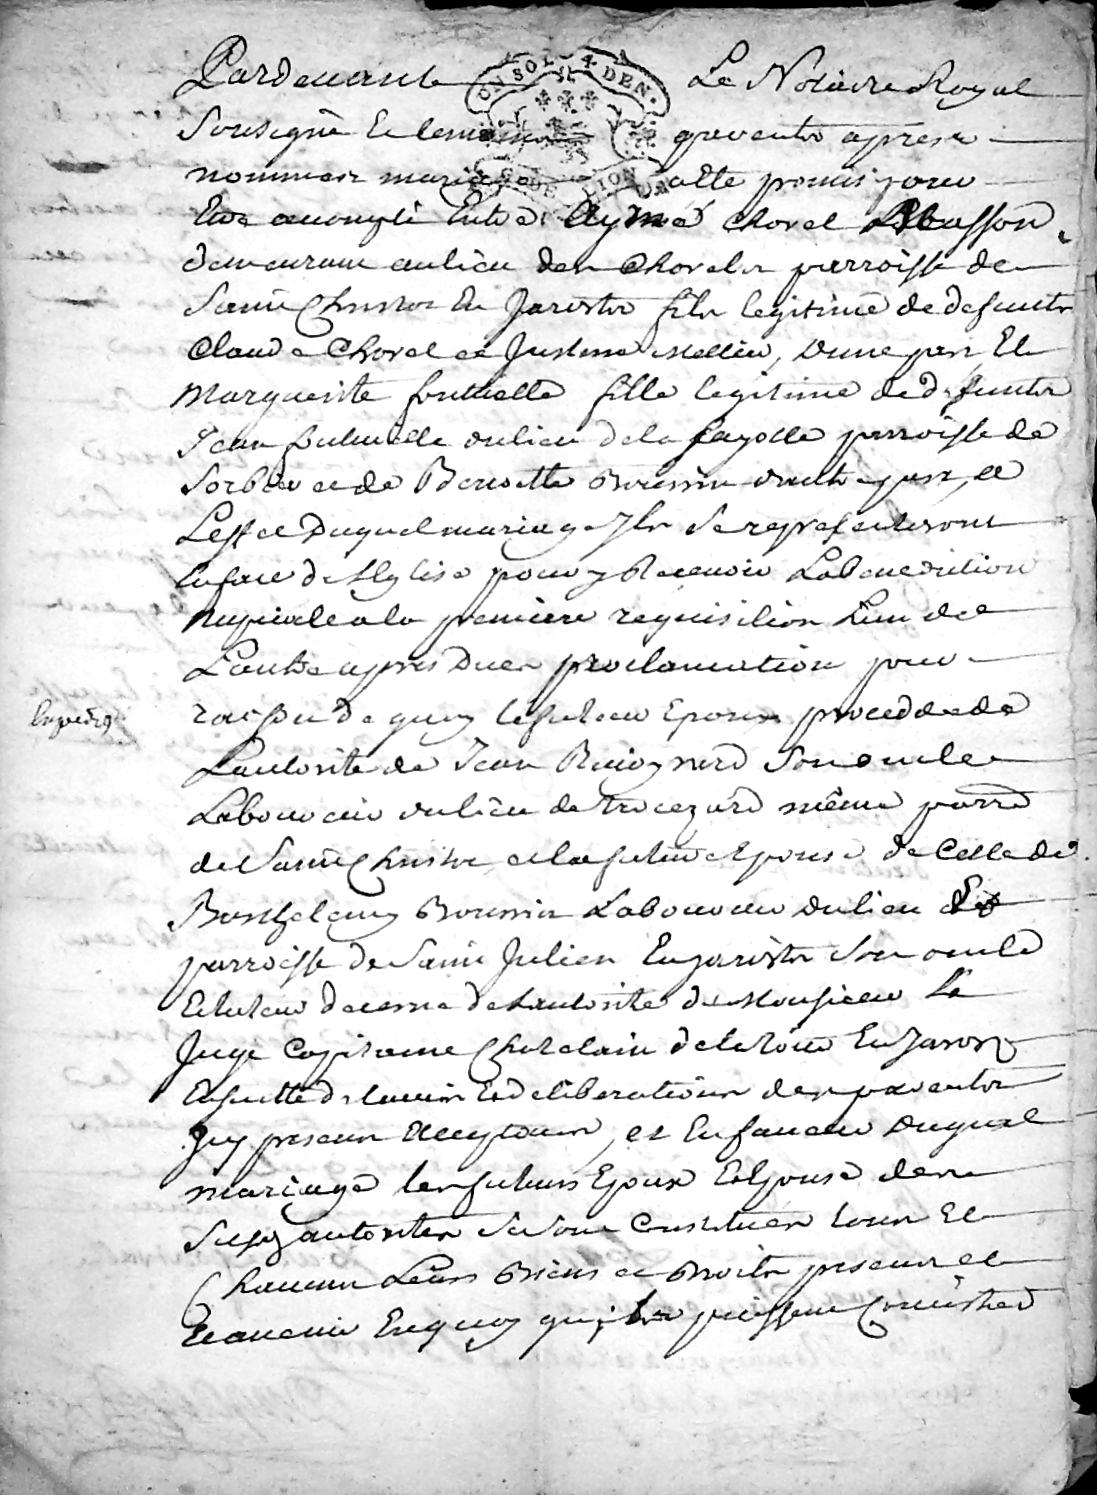 Pardevant Le Notaire Royal
UN SOL 4 DEN.
LION
Soussigné et les parents apres
nommes mariage a esté promis pour
Estre accomply Entre Aymé Chorel
demeurant au lieu des Chorels parroisse de
Saint Christo En Jarestz fils legitime de defunts
Claude Chorel et Justine Mellieu, d'une part Et
Marguerite fontvielle fille legitime de defunts
Jean fontvielle du lieu de la fayolle parroisse de
Sorbier et de Benoitte Boursin d'autre part, et
L'effet Duquel mariage Ils se representeront
En face de L'Eglise pour y Recevoir La benediction
nuptiale a la premiere requisition L'un de
L'autre apres Dues proclamation pour
raison de quoy le futeur Epoux procedde de
L'autorite de Jean son oncle
Laboureur du lieu de même parre
de Saint Christo, et la future Epouse de Celle de
Barthelemy Boursin Laboureur du lieu
parroisse de Saint Julien En Jarestz son oncle
Et tuteur decerné de L'autorite de Monsieur Le
Juge Capitaine Chatelain de la tour En Jarestz
En suitte de l'avis Et deliberations des parents
Icy presents et En faveur Duquel
mariage les futurs Epoux Et Epouse des
Susd autorites se sont Constitues tous Et
Chacuns Leurs Biens et Droits presents et
Et avenir En quoy qu'ils puissent Consister